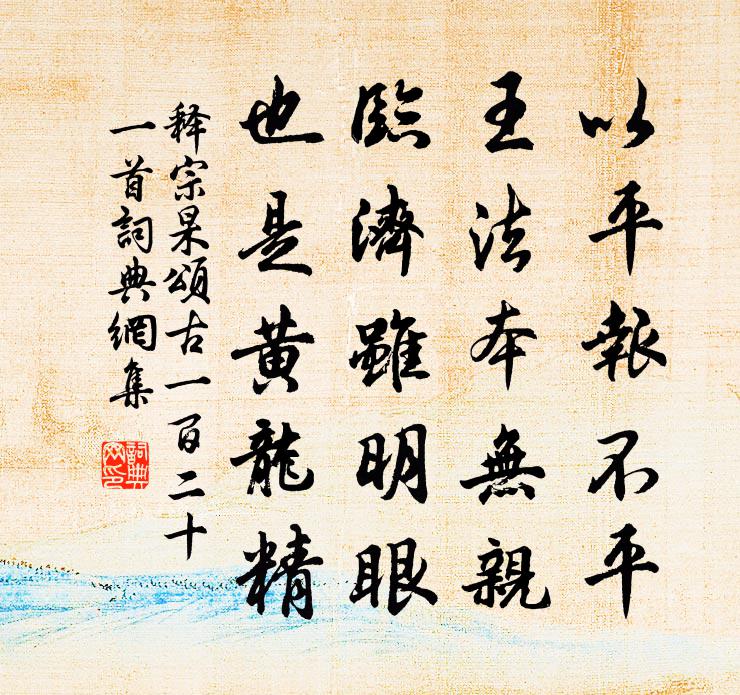 以平報不平
王法本無親
臨濟雖明眼
也是黄龍精
释宗杲頌古一百二十
一首詞典網集
詞典网印